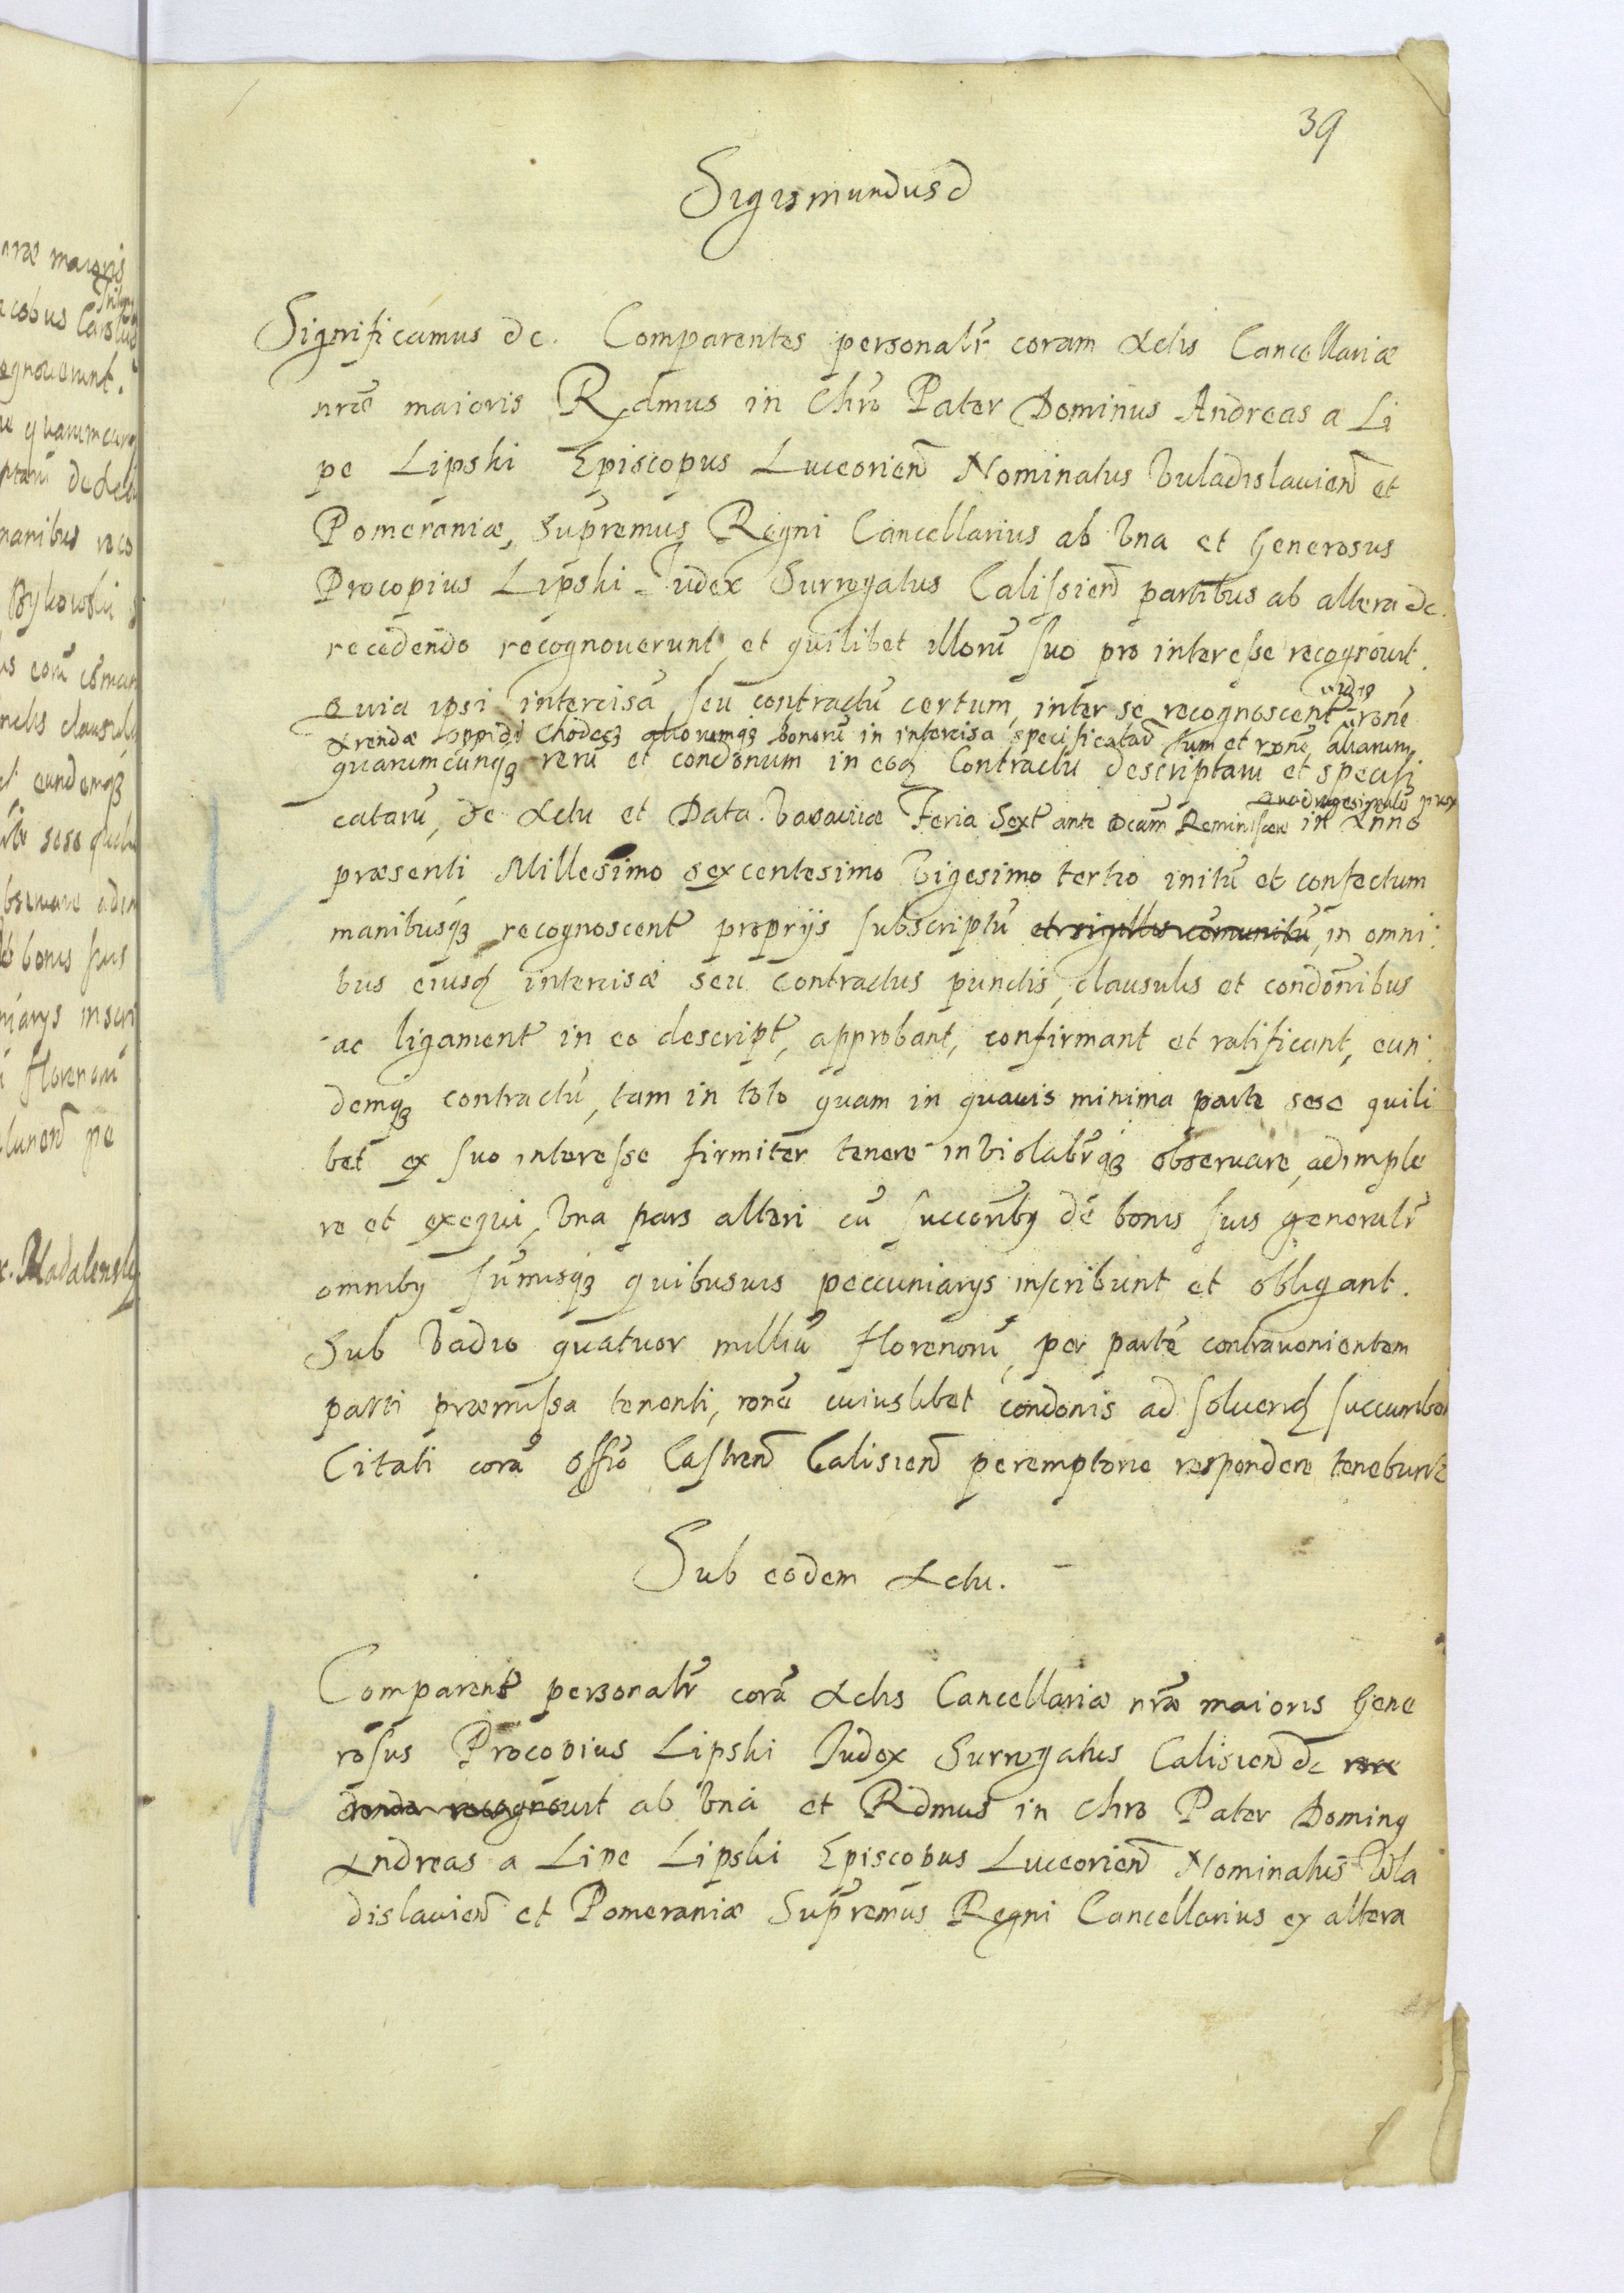 39
Sigismundus &
Significamus &c. Comparentes personalr̃ coram Actis Cancellariæ
nræ̃ maioris Rdmus in Chrõ Pater Dominus Andreas a Li
pe Lipski Episcopus Luceorien̄ Nominatus Vuladislauien̄ et
Pomeraniæ, Supremus Regni Cancellarius ab Vna et Generosus
Procopius Lipski Iudex Surrogatus Calissien̄ partibus ab altera &c.
recedendo recognouerunt, et quilibet illorũ suo pro interesse recognouit.
Quia ipsi intercisã seu contractũ certum, inter se recognoscent̃ ronẽ
Arendæ oppidi Chodecz aliorumqȝ bonorũ in intercisa specificatar̃ tum et ronẽ aliarum
quarumcunqȝ rerũ et condonum in eoq̃ Contractu descriptarũ et specifi
catarũ, de Actu et Data Varsauiæ Feria Sext̃ ante Dcam Reminiscere Quadragesimalẽ prox in Anno
præsenti Millesimo sexcentesimo Vigesimo tertio initũ et confectum
manibusqȝ recognoscent̃ proprijs subscriptũ et sigillis comunitũ, in omni
bus eiusq̃ intercisæ seu contractus punctis, clausulis et condonibus
ac ligament̃ in eo descript̃, approbant, confirmant et ratificant, eun
demqȝ contractũ, tam in toto quam in quauis minima parte sese quili
bet ex suo interesse firmiter tenere inviolabr̃qȝ obseruare, adimple
re et exequi, Vna pars alteri cũ succoribȝ de bonis suis generalr̃
omnibȝ sũmisqȝ quibusuis peccuniarys inscribunt et obligant.
Sub Vadio quatuor milliũ florenorũ, per partẽ contrauenientem
parti præmissa tenenti, ronẽ cuiuslibet condonis ad soluend̃ succumben
Citati corã offo Castren̄ Calisien̄ peremptorie respondere tenebunt̃
Sub eodem Actu.
Comparent̃ personalr̃ corã Actis Cancellariæ nræ̃ maioris Gene
rosus Procopius Lipski Iudex Surrogatus Calisien̄ &c rece
dendo recognouit ab Vna et Rdmus in Chro Pater Dominȝ
Andreas a Lipe Lipski Episcopus Luceorien̄ Nominatus Wla
dislauien̄ et Pomeraniæ Supremus Regni Cancellarius ex altera
nræ maioris
egnouerunt.
Bykowski